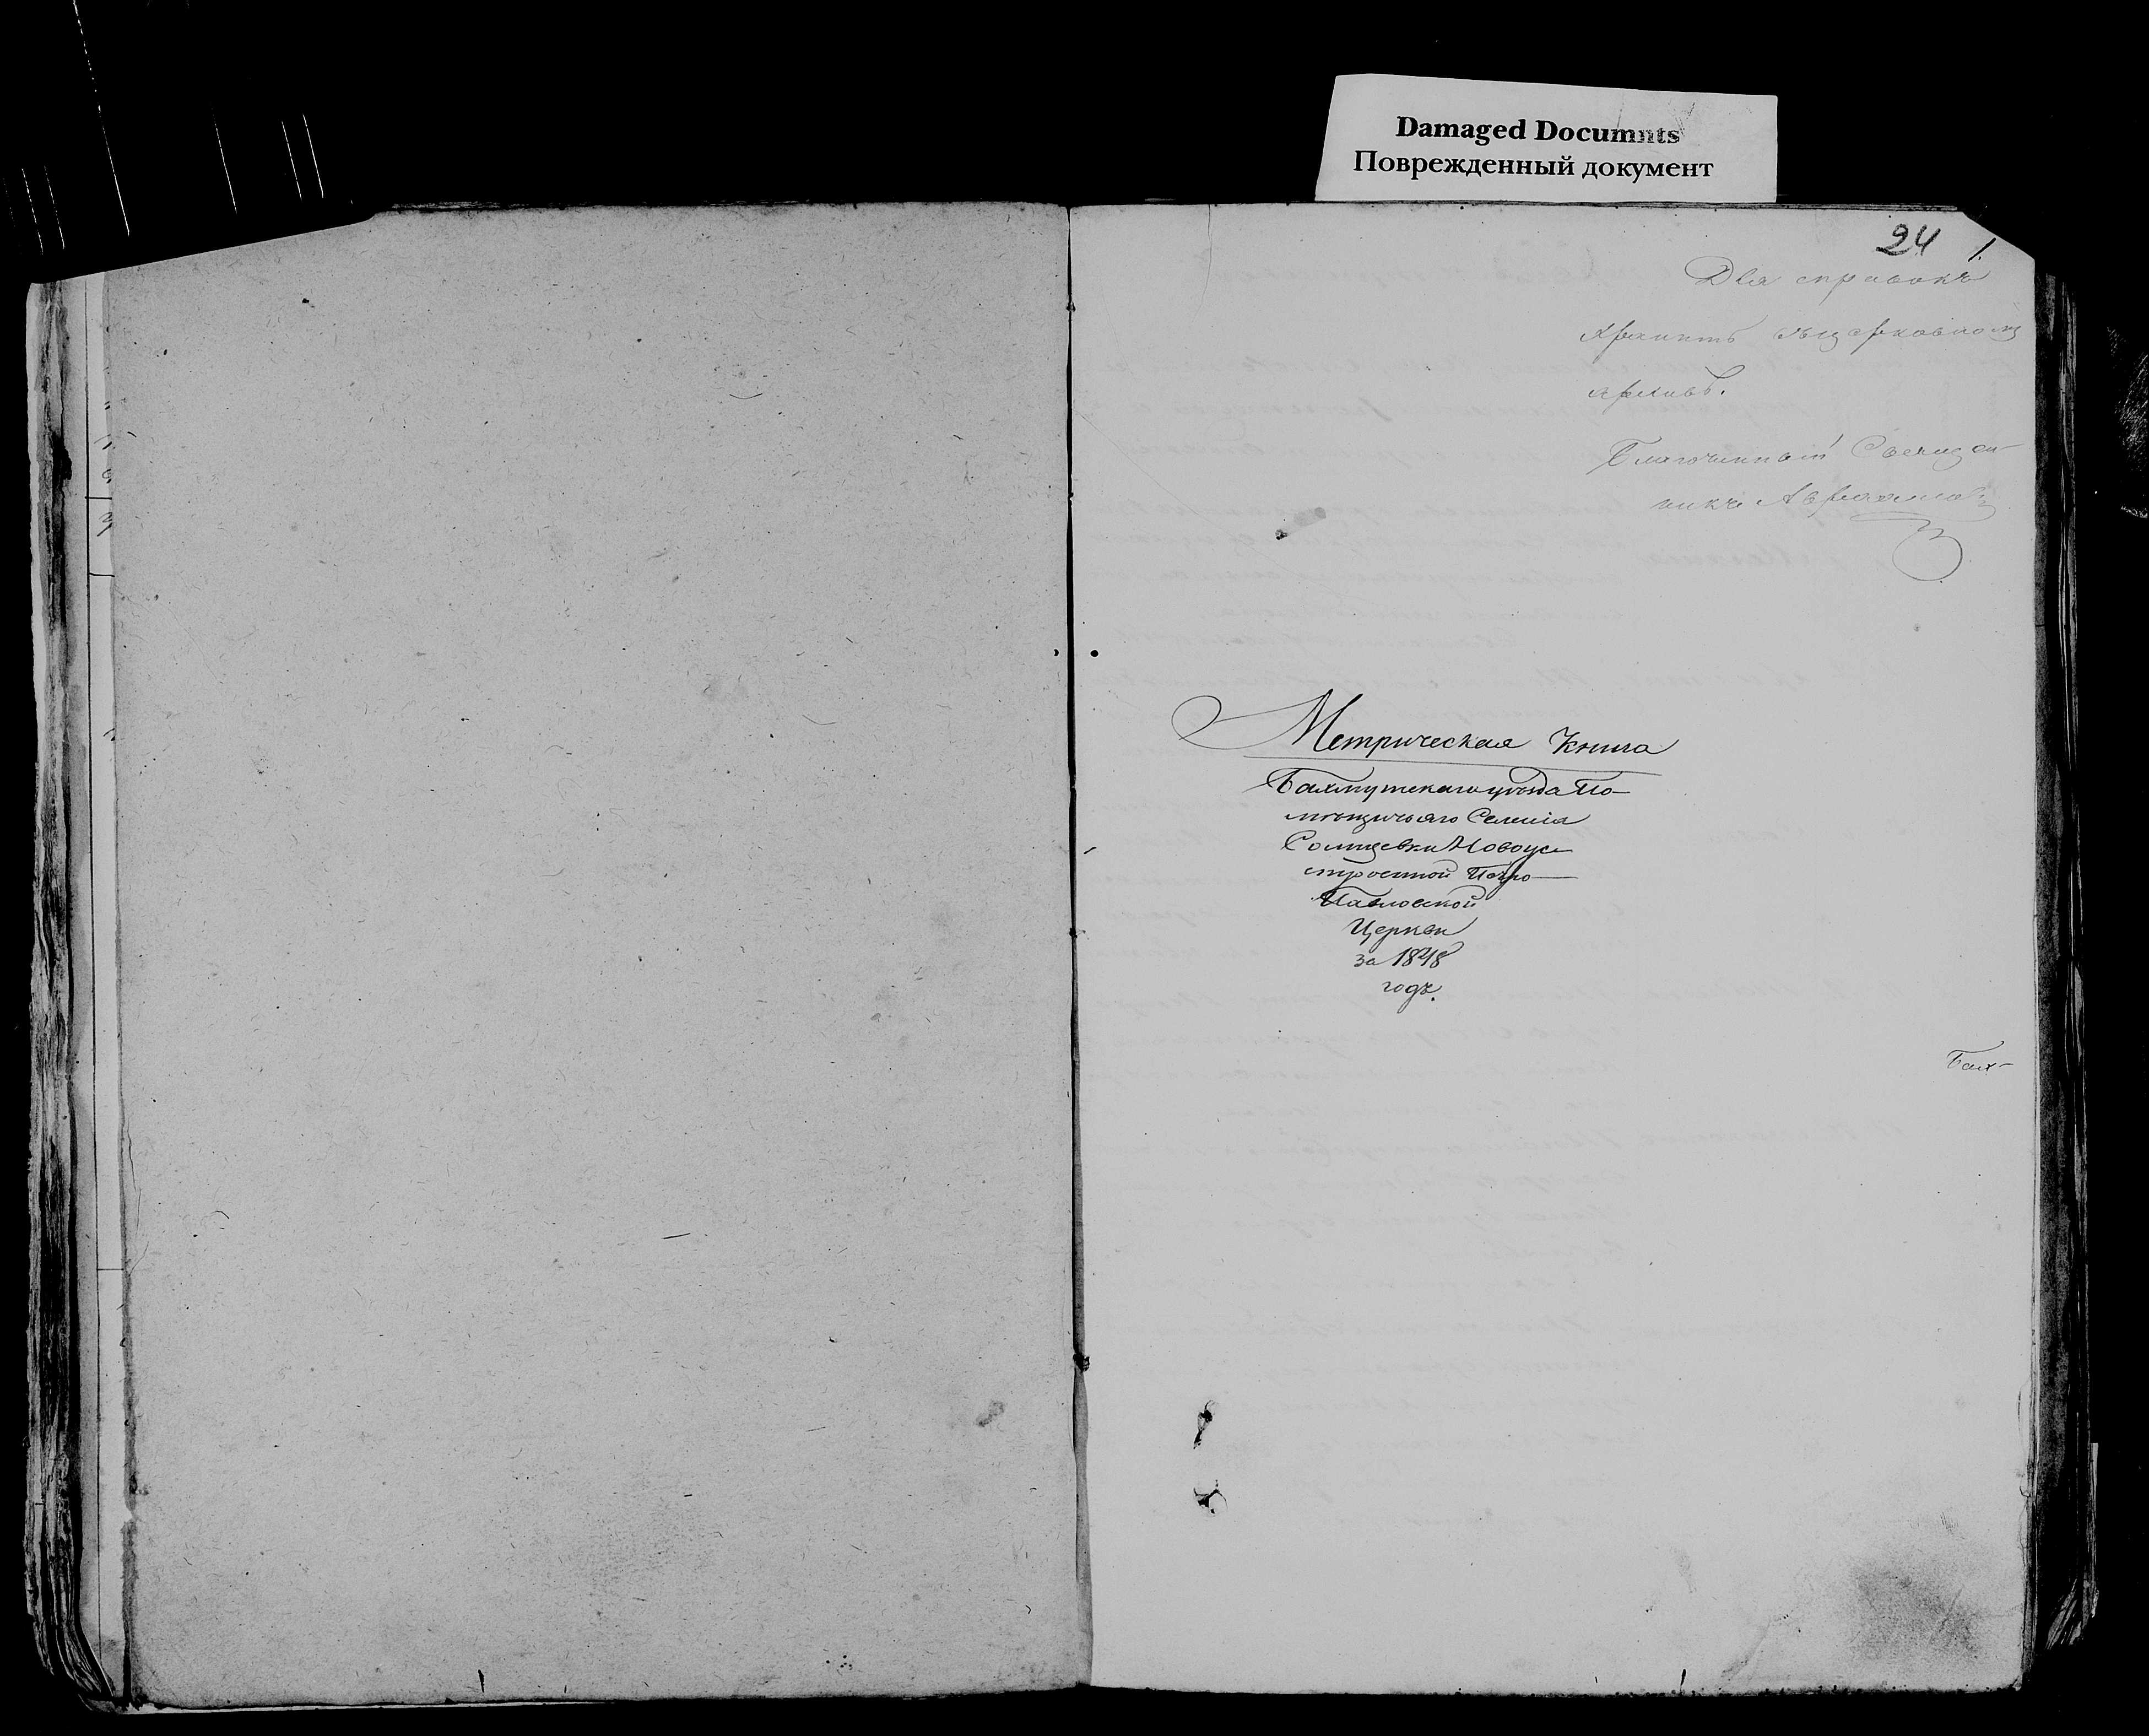 Damaged Documnts
Поврежденный документ
24 1.
Для справокъ
хранить въ церковномъ
архивѣ.
Благочинный Священ-
никъ
Метрическая Книга
Бахмутскаго уѣзда По-
мѣщичьяго Селенія
Солнцевки Новоус-
строенной Петро-
Павловской
Церкви
за 1848
годъ.
Бах-